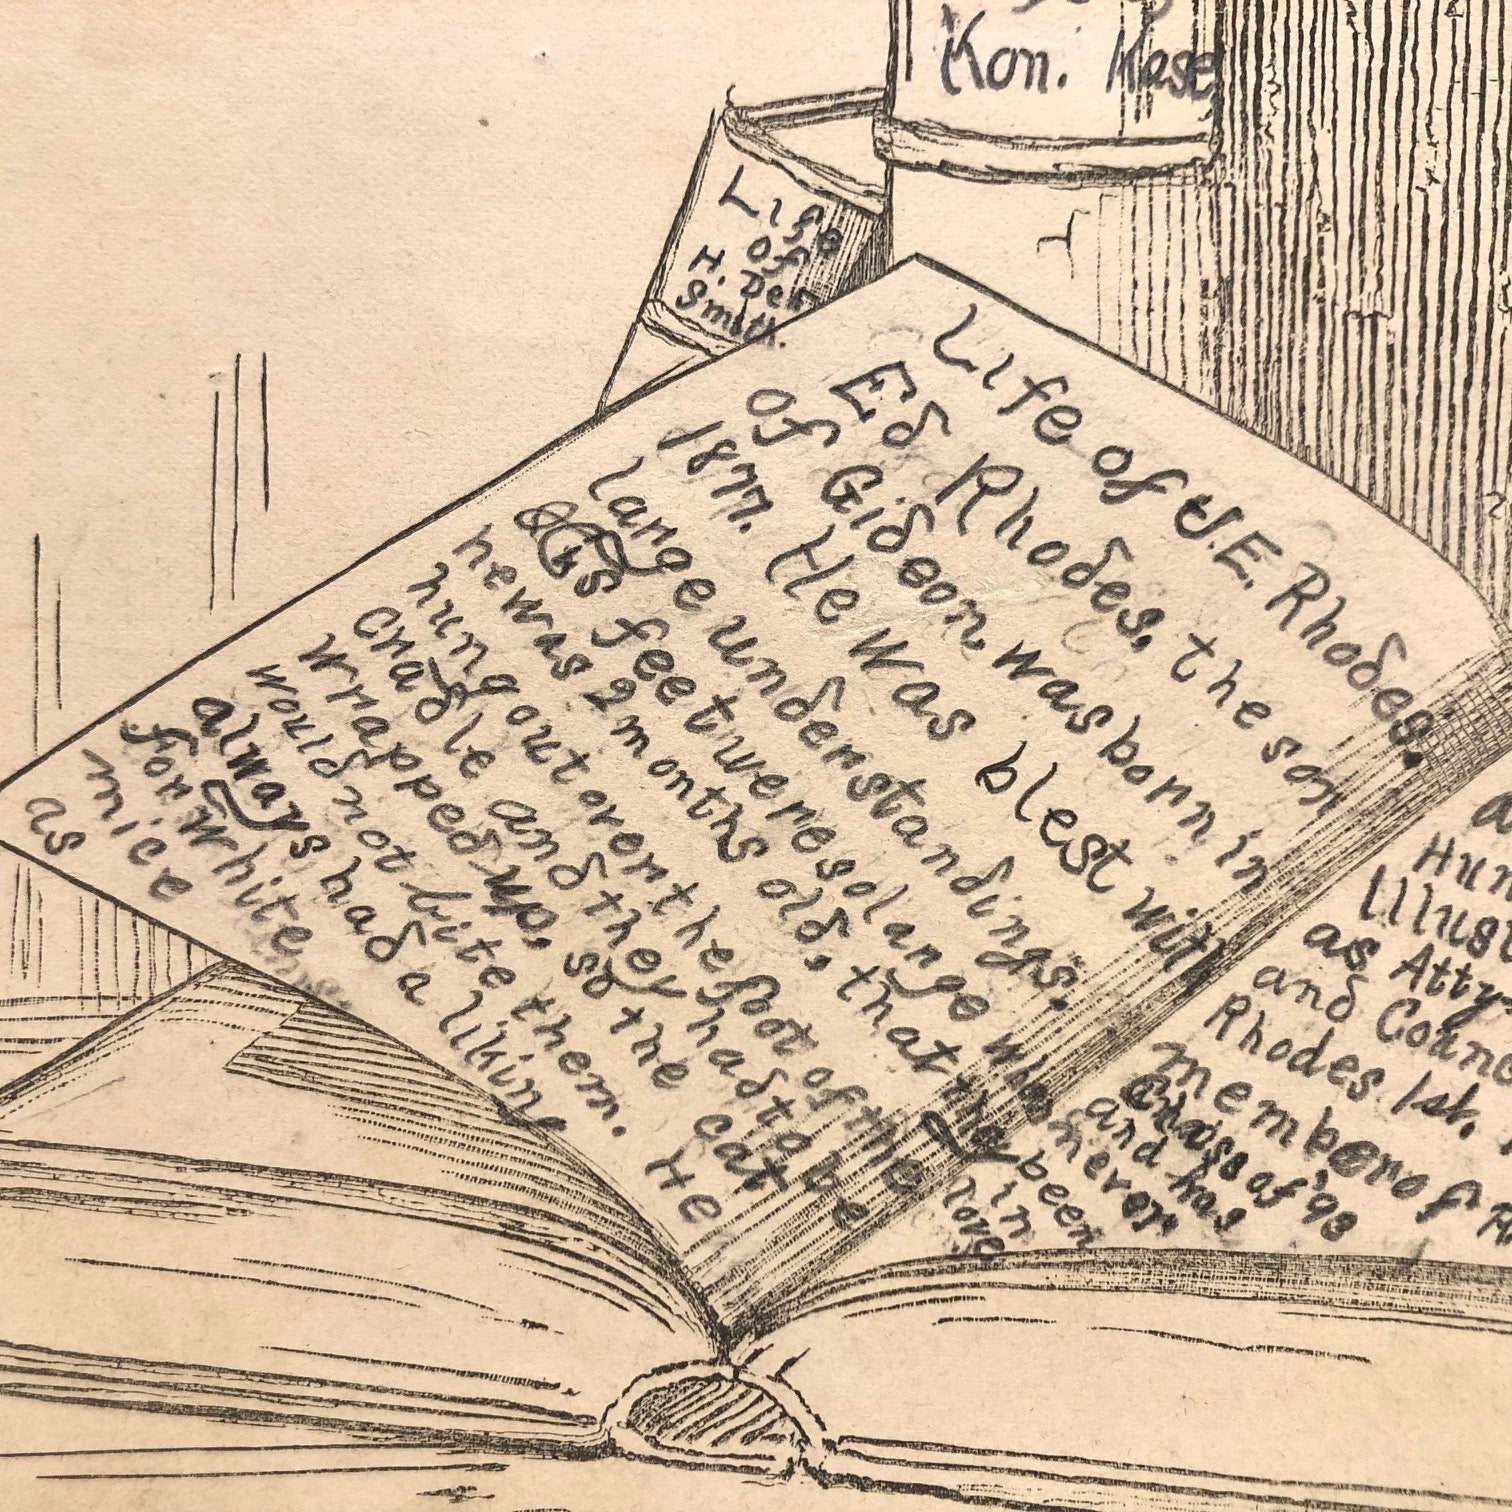 Kon. Kase
Life
of
H. Den
Smith.
Life of J.E. Rhodes.
Ed Rhodes, the son
of Gideon, was born in
1877. He was blest with
large understandings.
His feet were so large when
he was 2 months old, that they
hung out over the foot of the
cradle and they had to be
wrapped up, so the cat
would not bite them. He
always had a liking
for white
mice
as
Illust
as Atty
and Coun
Rhodes Isl.
member of R
Class of '98
and has
never
been
in
love